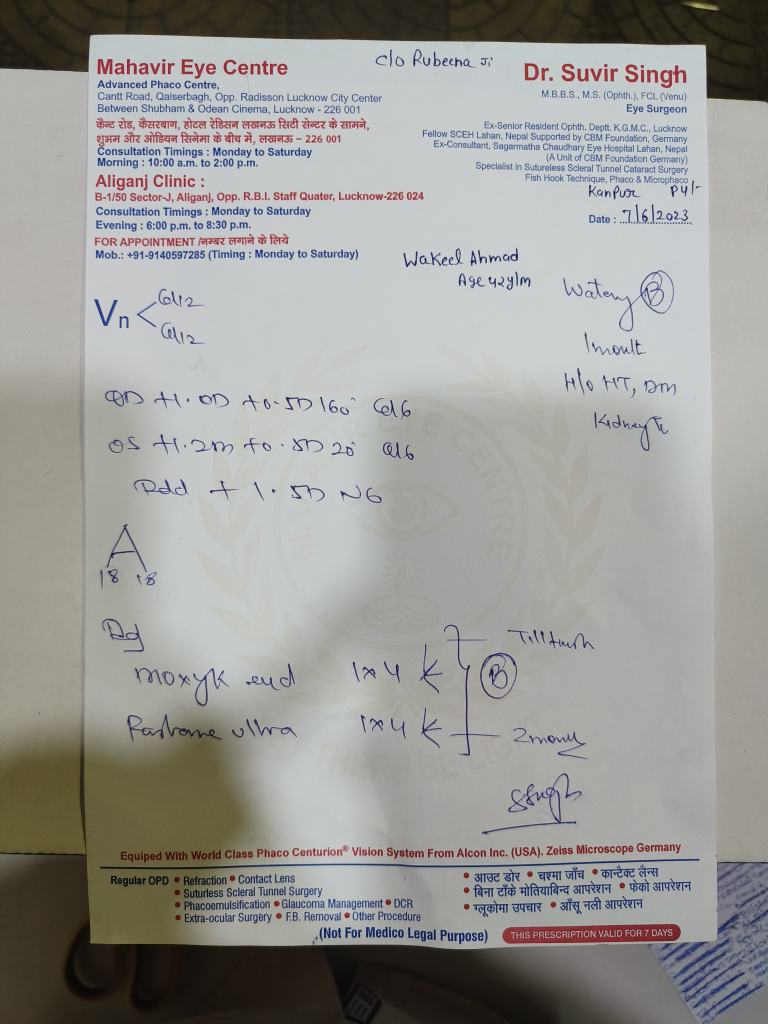 c/o Rubeena Ji
Mahavir Eye Centre
Advanced Phaco Centre,
Cantt Road, Qaiserbagh, Opp. Radisson Lucknow City Center
Between Shubham & Odean Cinema, Lucknow - 226 001
कैन्ट रोड, कैसरबाग, होटल रेडिसन लखनऊ सिटी सेन्टर के सामने,
शुभम और ओडियन सिनेमा के बीच में, लखनऊ - 226 001
Consultation Timings : Monday to Saturday
Morning : 10:00 a.m. to 2:00 p.m.
Aliganj Clinic :
B-1/50 Sector-J, Aliganj, Opp. R.B.I. Staff Quater, Lucknow-226 024
Consultation Timings : Monday to Saturday
Evening : 6:00 p.m. to 8:30 p.m.
FOR APPOINTMENT /नम्बर लगाने के लिये
Mob.: +91-9140597285 (Timing : Monday to Saturday)
Dr. Suvir Singh
M.B.B.S., M.S. (Ophth.), FCL (Venu)
Eye Surgeon
Ex-Senior Resident Ophth. Deptt. K.G.M.C., Lucknow
Fellow SCEH Lahan, Nepal Supported by CBM Foundation, Germany
Ex-Consultant, Sagarmatha Chaudhary Eye Hospital Lahan, Nepal
(A Unit of CBM Foundation Germany)
Specialist in Sutureless Scleral Tunnel Cataract Surgery
Fish Hook Technique, Phaco & Microphaco
Kanpur
Date : 7/6/2023
Wakeel Ahmad
Age 42y/m
Watery B
1 month
H/o HT, DM
Kidney
Vn
6/12
6/12
OD +1.0D +0.5D 160° 6/6
OS +1.2 +0.5D 20° 6/6
Add + 1.5D N6
A
18 18
Moxyk 1x4
B
ultra 1x4
2
MAHAVIR EYE CENTRE
THERE BE LIGHT
Equiped With World Class Phaco Centurion® Vision System From Alcon Inc. (USA). Zeiss Microscope Germany
Regular OPD • Refraction • Contact Lens
• Suturless Scleral Tunnel Surgery
• Phacoemulsification • Glaucoma Management • DCR
• Extra-ocular Surgery • F.B. Removal • Other Procedure
• आउट डोर • चश्मा जाँच • कान्टैक्ट लैन्स
• बिना टाँके मोतियाबिन्द आपरेशन • फेको आपरेशन
• ग्लूकोमा उपचार • आँसू नली आपरेशन
(Not For Medico Legal Purpose)
THIS PRESCRIPTION VALID FOR 7 DAYS